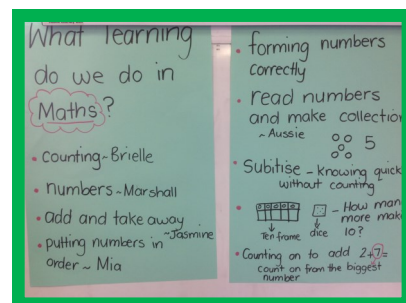 What learning
do we do in
Maths?
• counting ~ Brielle
• numbers ~ Marshall
• add and take away
~ Jasmine
• putting numbers in
order ~ Mia
• forming numbers
correctly
• read numbers
and make collection
~ Aussie
5
• Subitise - knowing quick
without counting
- How man
more make
10?
Ten frame dice
• Counting on to add 2+7=
count on from the biggest
number